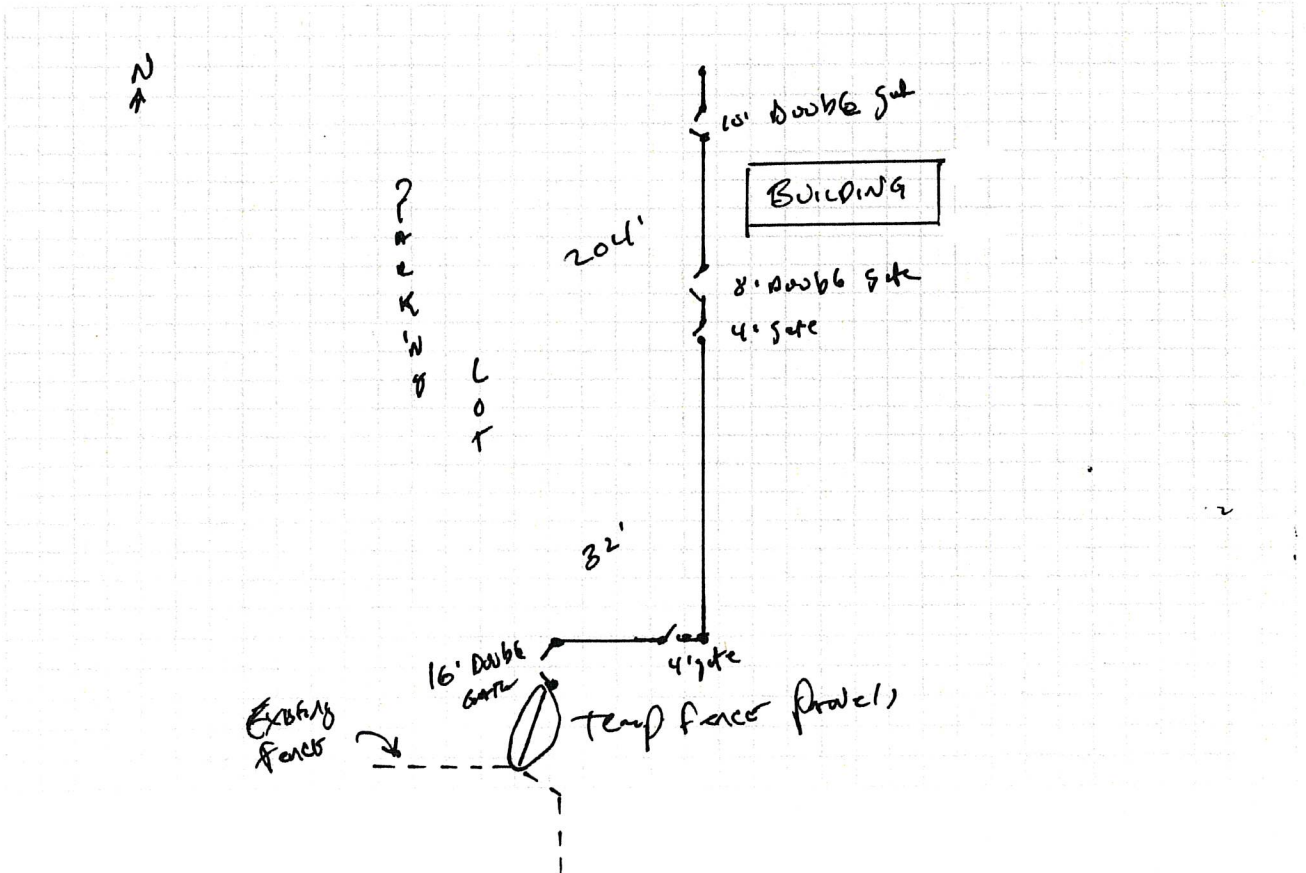 N
10' Double gate
BUILDING
204'
PARKING
8' Double gate
4' gate
LOT
32'
16' Double
GATE
4' gate
Existing
fence
temp fence panels